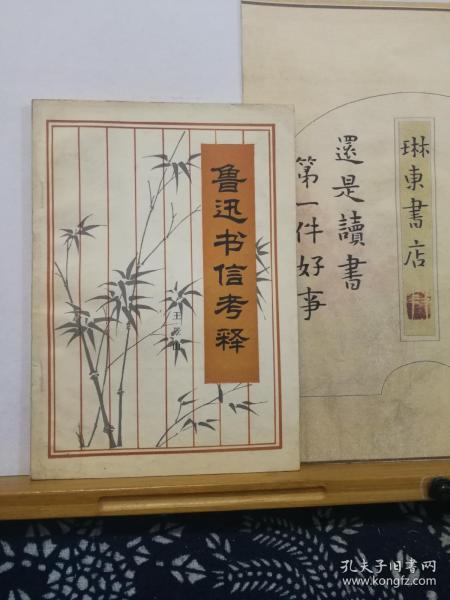 鲁迅书信考释
王
琳東書店
還是讀書
第一件好事
孔夫子旧书网
www.kongfz.com